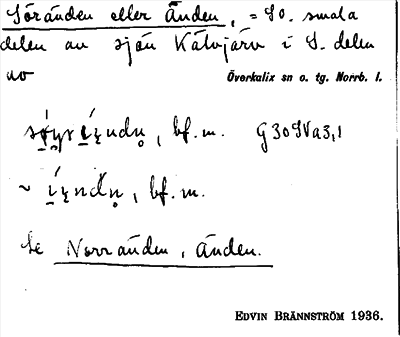 Söränden eller Änden, = SO. smala
delen av sjön Kälvjärv i S. delen
av Överkalix sn o. tg. Norrb. l.
bf. m. G309Va3,1
~ bf. m.
Se Norränden, Änden.
EDVIN BRÄNNSTRÖM 1936.